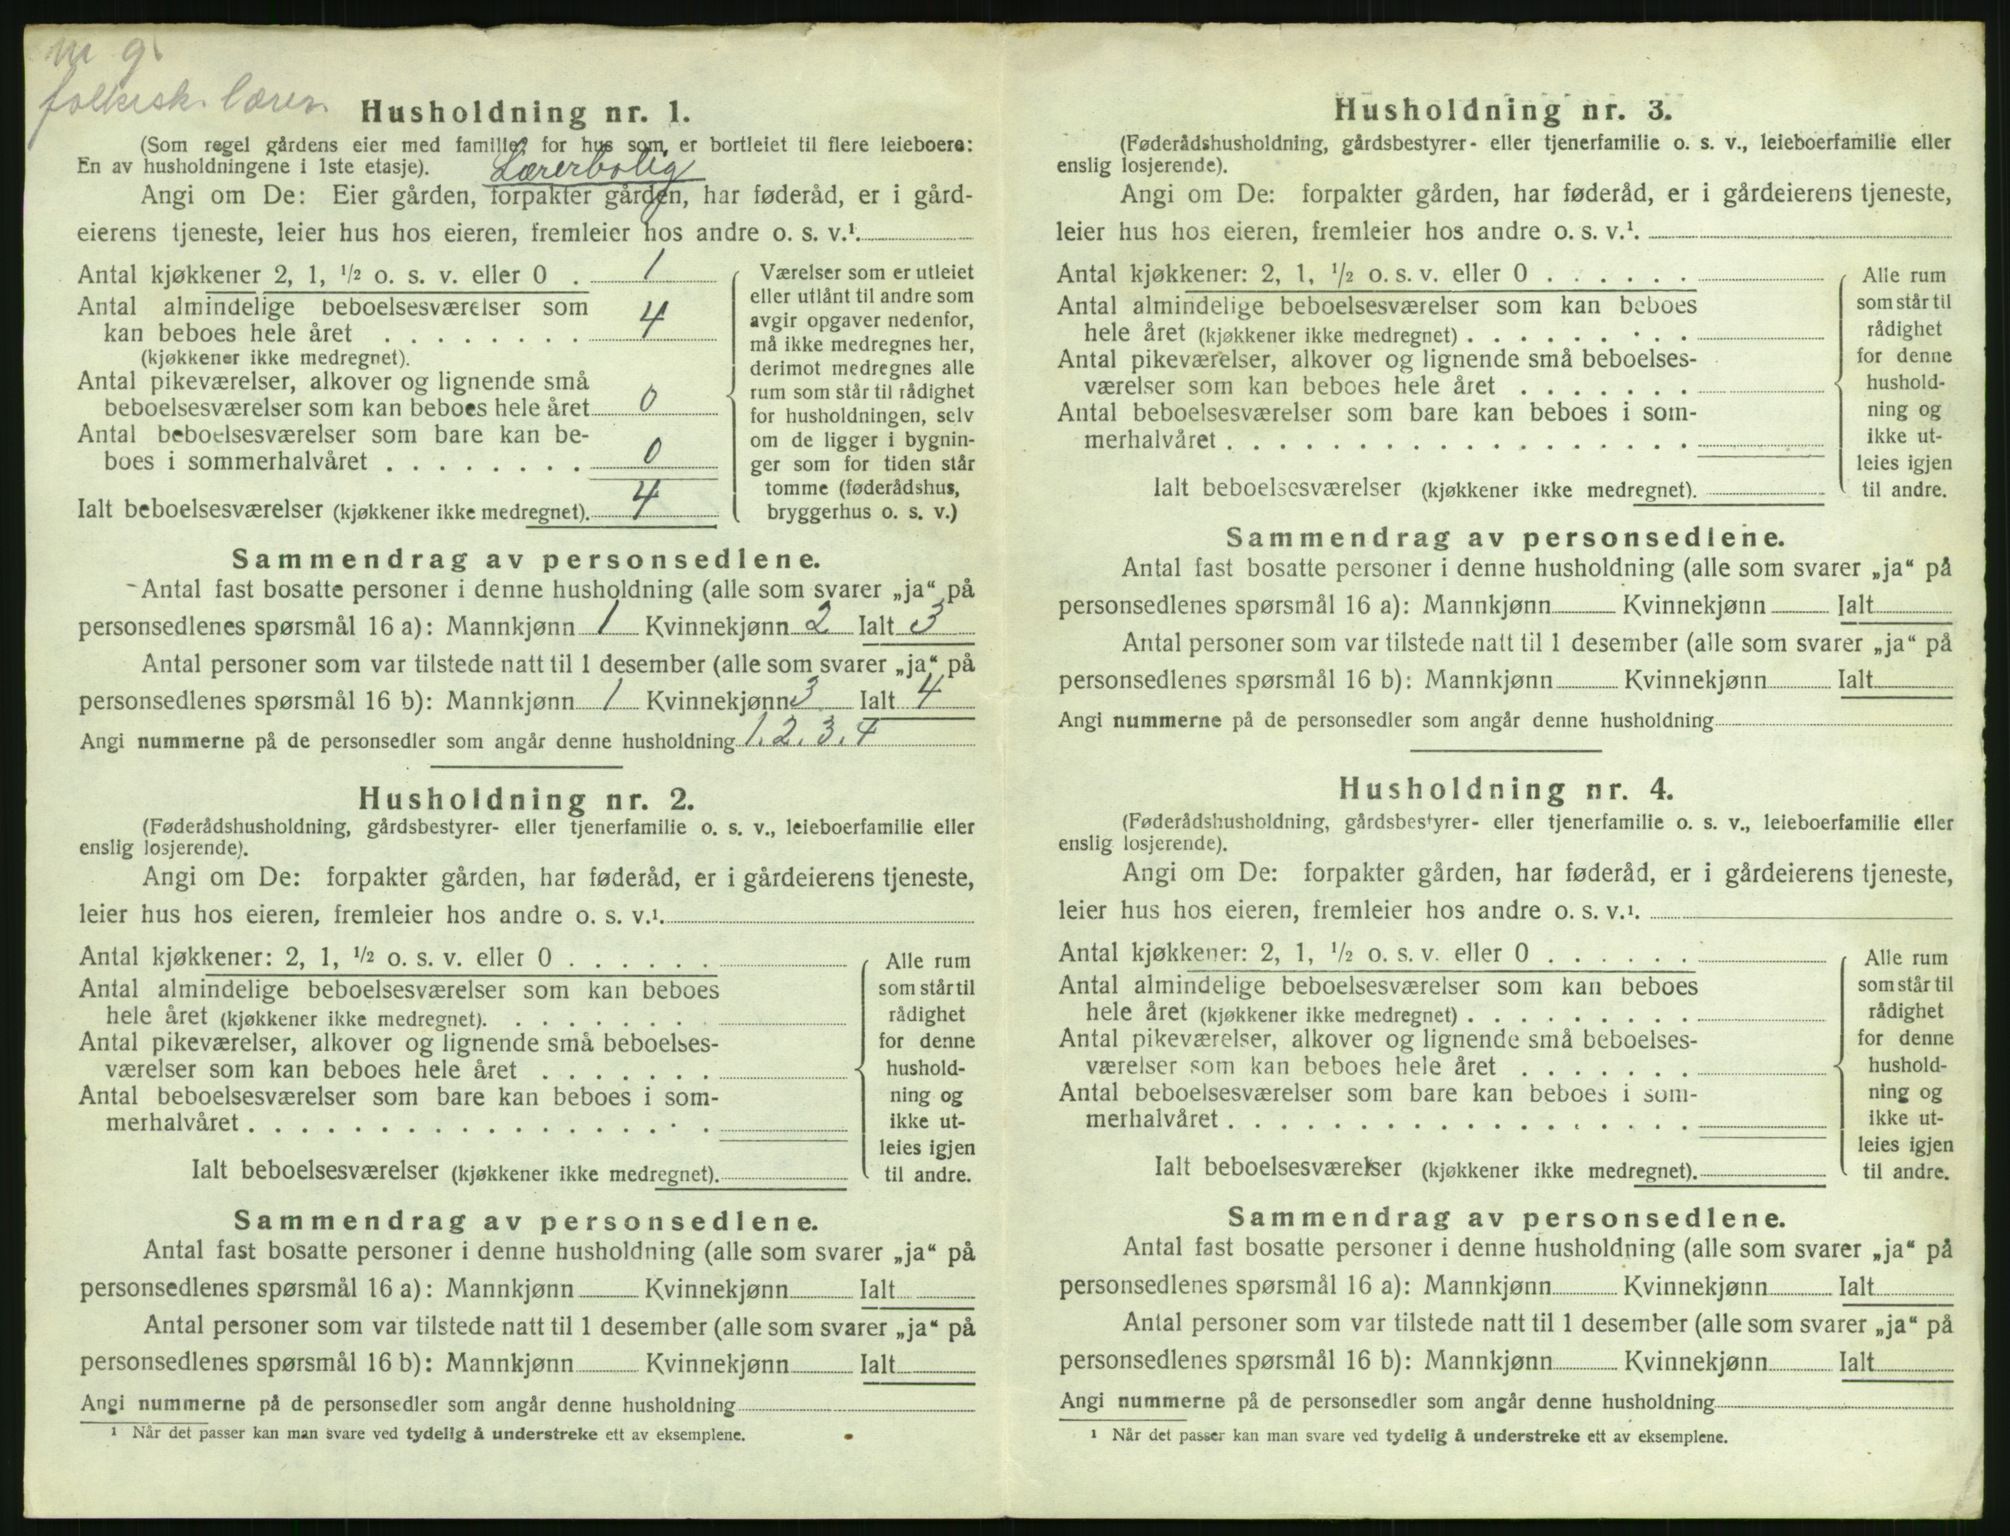 m g.
folkesk. lærer
Husholdning nr. 1.
(Som regel gårdens eier med familie, for hus som er bortleiet til flere leieboere:
En av husholdningene i 1ste etasje). Lærerbolig
Angi om De: Eier gården, forpakter gården, har føderåd, er i gård-
eierens tjeneste, leier hus hos eieren, fremleier hos andre o. s. v.¹.
Antal kjøkkener 2, 1, ½ o. s. v. eller 0 . 1
Antal almindelige beboelsesværelser som
kan beboes hele året . . . . . . . . 4
(kjøkkener ikke medregnet).
Antal pikeværelser, alkover og lignende små
beboelsesværelser som kan beboes hele året 0
Antal beboelsesværelser som bare kan be-
boes i sommerhalvåret . . . . . . . . 0
Ialt beboelsesværelser (kjøkkener ikke medregnet). 4
Værelser som er utleiet
eller utlånt til andre som
avgir opgaver nedenfor,
må ikke medregnes her,
derimot medregnes alle
rum som står til rådighet
for husholdningen, selv
om de ligger i bygnin-
ger som for tiden står
tomme (føderådshus,
bryggerhus o. s. v.)
Sammendrag av personsedlene.
Antal fast bosatte personer i denne husholdning (alle som svarer „ja“ på
personsedlenes spørsmål 16 a): Mannkjønn 1 Kvinnekjønn 2 Ialt 3
Antal personer som var tilstede natt til 1 desember (alle som svarer „ja“ på
personsedlenes spørsmål 16 b): Mannkjønn 1 Kvinnekjønn 3 Ialt 4
Angi nummerne på de personsedler som angår denne husholdning 1. 2. 3. 4
Husholdning nr. 2.
(Føderådshusholdning, gårdsbestyrer- eller tjenerfamilie o. s. v., leieboerfamilie eller
enslig losjerende).
Angi om De: forpakter gården, har føderåd, er i gårdeierens tjeneste,
leier hus hos eieren, fremleier hos andre o. s. v.¹.
Antal kjøkkener: 2, 1, ½ o. s. v. eller 0 . . . . . .
Antal almindelige beboelsesværelser som kan beboes
hele året (kjøkkener ikke medregnet). . . . . . . . .
Antal pikeværelser, alkover og lignende små beboelses-
værelser som kan beboes hele året . . . . . . .
Antal beboelsesværelser som bare kan beboes i som-
merhalvåret . . . . . . . . . . . . . . . . . .
Ialt beboelsesværelser (kjøkkener ikke medregnet).
Alle rum
som står til
rådighet
for denne
hushold-
ning og
ikke ut-
leies igjen
til andre.
Sammendrag av personsedlene.
Antal fast bosatte personer i denne husholdning (alle som svarer „ja“ på
personsedlenes spørsmål 16 a): Mannkjønn Kvinnekjønn Ialt
Antal personer som var tilstede natt til 1 desember (alle som svarer „ja“ på
personsedlenes spørsmål 16 b): Mannkjønn Kvinnekjønn Ialt
Angi nummerne på de personsedler som angår denne husholdning
¹ Når det passer kan man svare ved tydelig å understreke ett av eksemplene.
Husholdning nr. 3.
(Føderådshusholdning, gårdsbestyrer- eller tjenerfamilie o. s. v., leieboerfamilie eller
enslig losjerende).
Angi om De: forpakter gården, har føderåd, er i gårdeierens tjeneste,
leier hus hos eieren, fremleier hos andre o. s. v.¹.
Antal kjøkkener: 2, 1, ½ o. s. v. eller 0 . . . . . .
Antal almindelige beboelsesværelser som kan beboes
hele året (kjøkkener ikke medregnet) . . . . . . . . .
Antal pikeværelser, alkover og lignende små beboelses-
værelser som kan beboes hele året . . . . . . .
Antal beboelsesværelser som bare kan beboes i som-
merhalvåret . . . . . . . . . . . . . . . . . .
Ialt beboelsesværelser (kjøkkener ikke medregnet).
Alle rum
som står til
rådighet
for denne
hushold-
ning og
ikke ut-
leies igjen
til andre.
Sammendrag av personsedlene.
Antal fast bosatte personer i denne husholdning (alle som svarer „ja“ på
personsedlenes spørsmål 16 a): Mannkjønn Kvinnekjønn Ialt
Antal personer som var tilstede natt til 1 desember (alle som svarer „ja“ på
personsedlenes spørsmål 16 b): Mannkjønn Kvinnekjønn Ialt
Angi nummerne på de personsedler som angår denne husholdning
Husholdning nr. 4.
(Føderådshusholdning, gårdsbestyrer- eller tjenerfamilie o. s. v., leieboerfamilie eller
enslig losjerende).
Angi om De: forpakter gården, har føderåd, er i gårdeierens tjeneste,
leier hus hos eieren, fremleier hos andre o. s. v.¹.
Antal kjøkkener: 2, 1, ½ o. s. v. eller 0 . . . . . .
Antal almindelige beboelsesværelser som kan beboes
hele året (kjøkkener ikke medregnet) . . . . . . . . .
Antal pikeværelser, alkover og lignende små beboelses-
værelser som kan beboes hele året . . . . . . .
Antal beboelsesværelser som bare kan beboes i som-
merhalvåret . . . . . . . . . . . . . . . . . .
Ialt beboelsesværelser (kjøkkener ikke medregnet).
Alle rum
som står til
rådighet
for denne
hushold-
ning og
ikke ut-
leies igjen
til andre.
Sammendrag av personsedlene.
Antal fast bosatte personer i denne husholdning (alle som svarer „ja“ på
personsedlenes spørsmål 16 a): Mannkjønn Kvinnekjønn Ialt
Antal personer som var tilstede natt til 1 desember (alle som svarer „ja“ på
personsedlenes spørsmål 16 b): Mannkjønn Kvinnekjønn Ialt
Angi nummerne på de personsedler som angår denne husholdning
¹ Når det passer kan man svare ved tydelig å understreke ett av eksemplene.